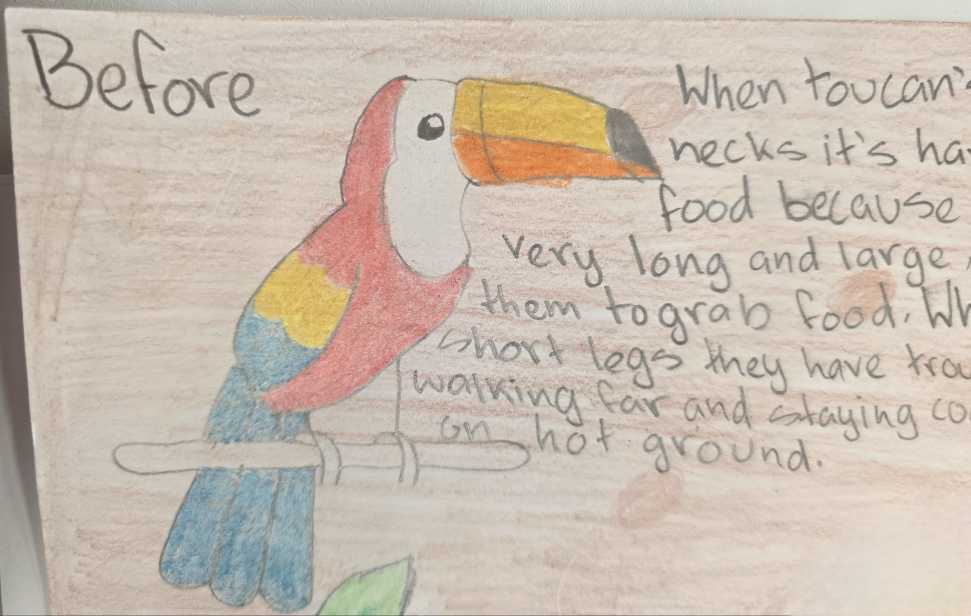 Before
When toucan's
necks it's
food because
very long and large
them to grab food.
short legs they have
walking far and staying
on hot ground.